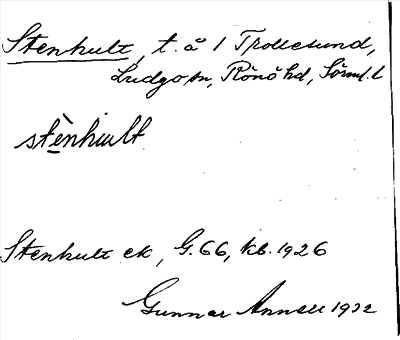 Stenhult, t. å 1 Trollesund,
Ludgo sn, Rönö hd, Sörml. l
stènhult
Stenhult ek, G. 66, kb. 1926
Gunnar 1932